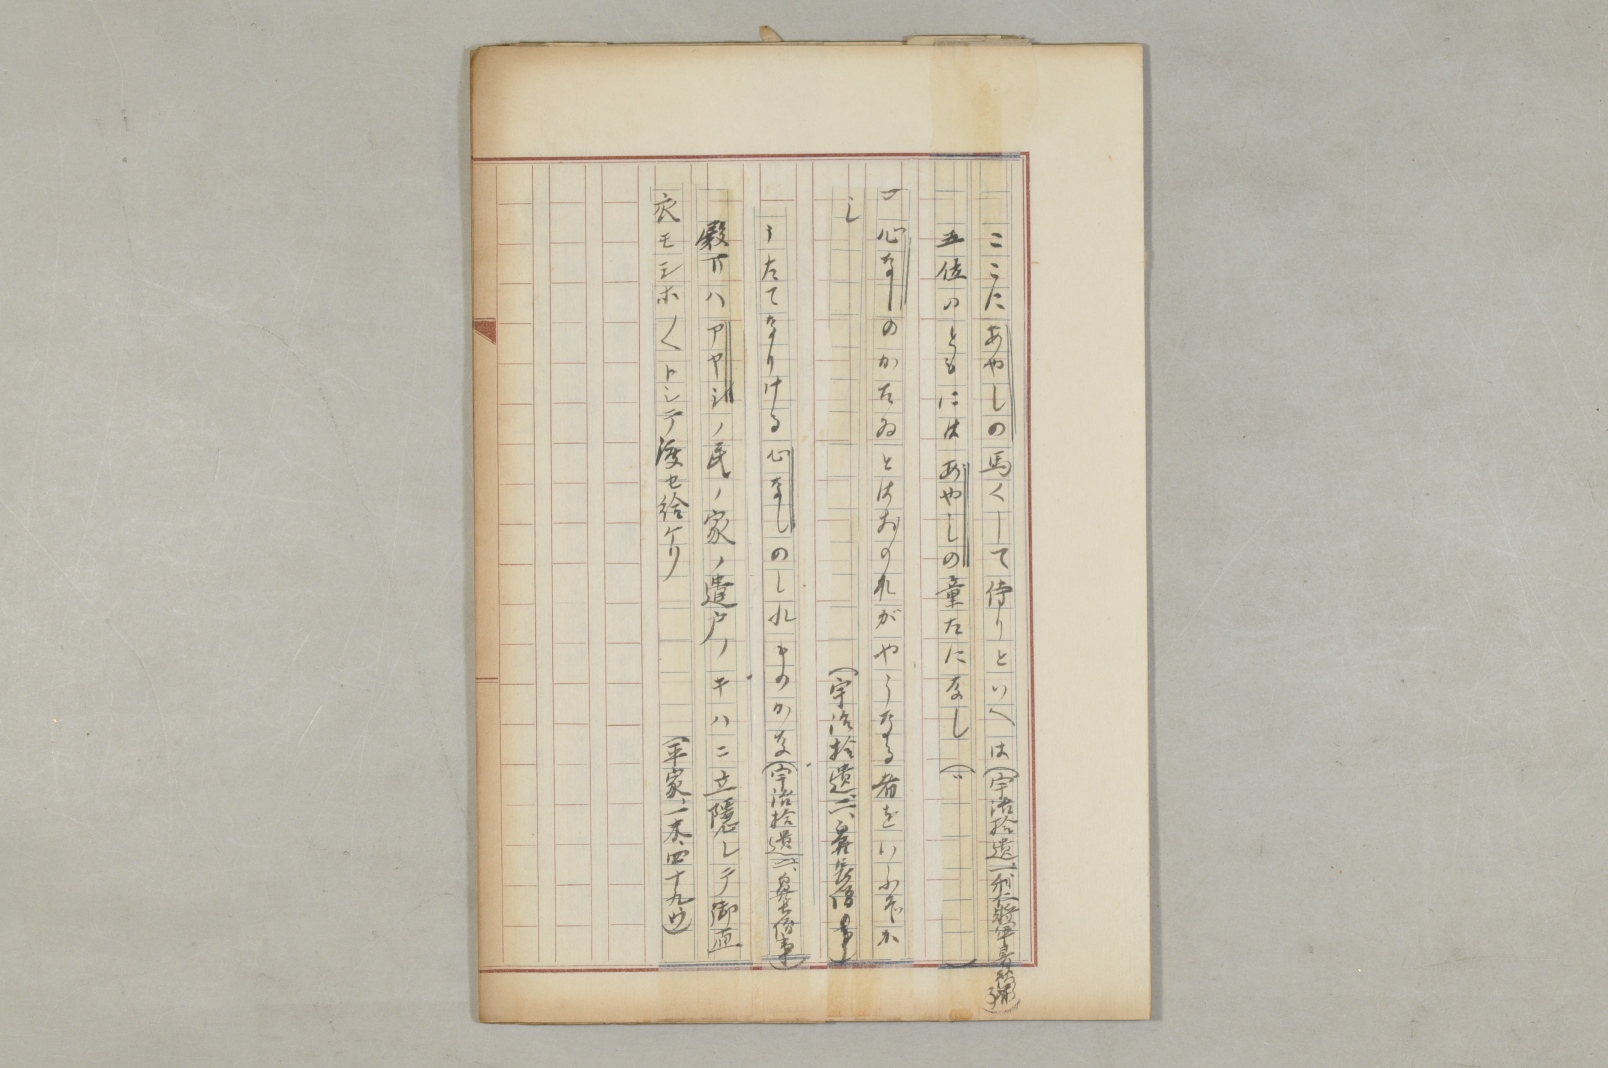 ここにあやしの馬くして侍りといへは(宇治拾遺一、利仁将軍暑預粥事)
五位のともにはあやしの童たになし(〃)
一 心なしのかたゐとはおのれがやうなる者をいふぞか
し(宇治拾遺二、鼻長僧事)
うたてなりける心なしのしれものかな(宇治拾遺二、鼻長僧事)
殿下ハアヤシノ民ノ家ノ遣戸ノキハニ立隠レテ御直
衣モシホ〱トシテ渡セ給ケリ(平家、一本、四十九ウ)